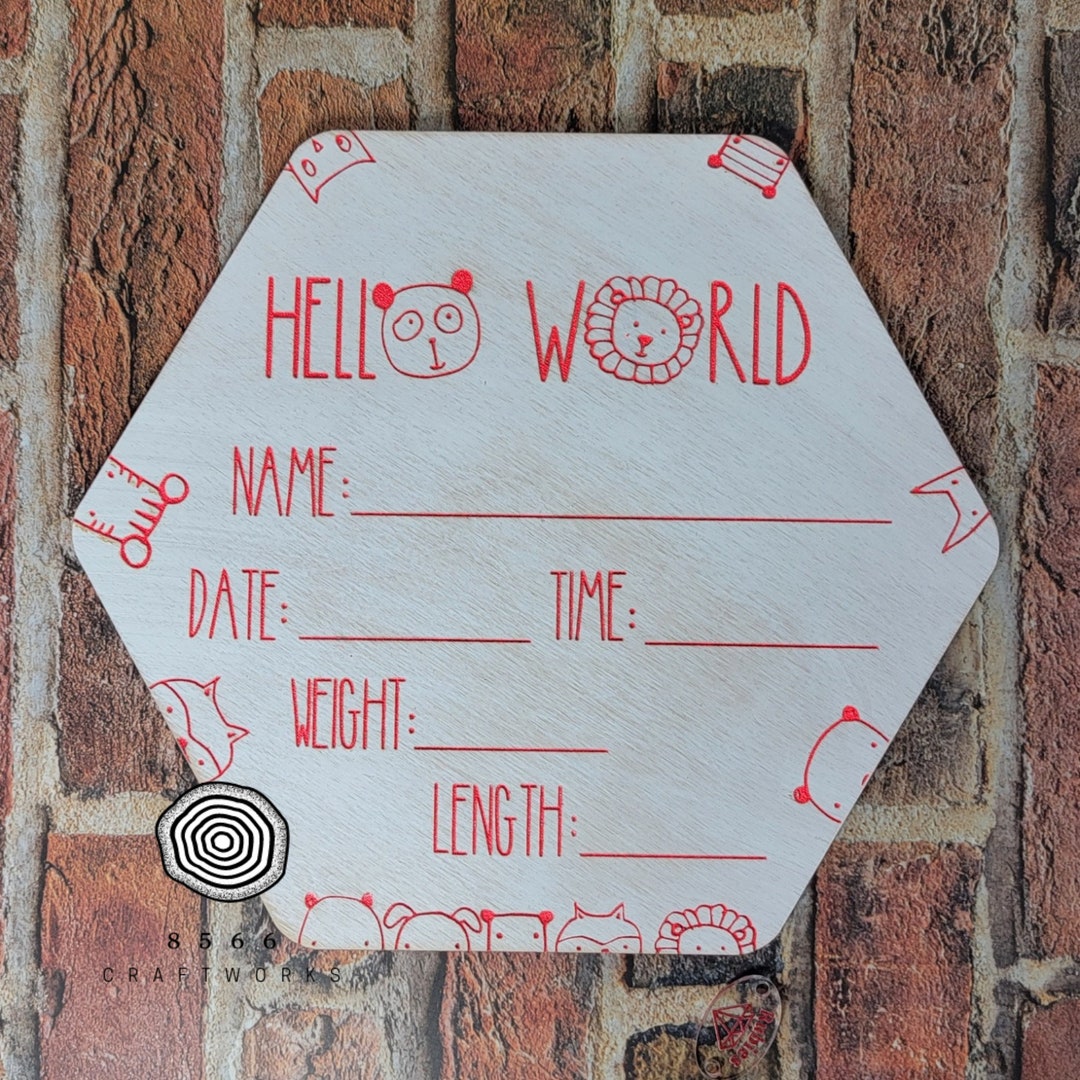 HELLO WORLD
NAME:
DATE: TIME:
WEIGHT:
LENGTH:
8566
CRAFTWORKS